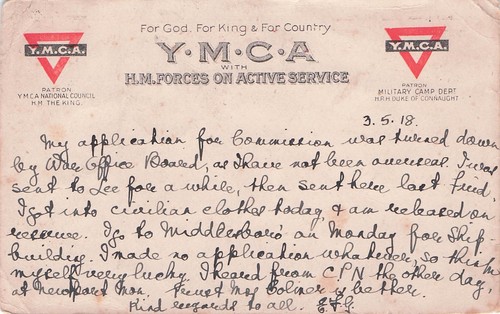 For God. For King & For Country.
Y.M.C.A.
Y.M.C.A.
Y.M.C.A
WITH
H.M. FORCES ON ACTIVE SERVICE
PATRON
Y.M.C.A. NATIONAL COUNCIL
H.M. THE KING.
PATRON
MILITARY CAMP DEPT
H.R.H. DUKE OF CONNAUGHT
3.5.18.
My application for Commission was turned down
by War Office Board, as I have not been overseas. I was
sent to Lee for a while, then sent here last Frid.
I got into civilian clothes today, & am released on
reserve. I go to Middlesboro' on Monday for Ship-
building. I made no application whatever, so think
myself very lucky. I heard from C P N the other day,
at Newport Mon. Trust Mrs is better.
Kind regards to all.